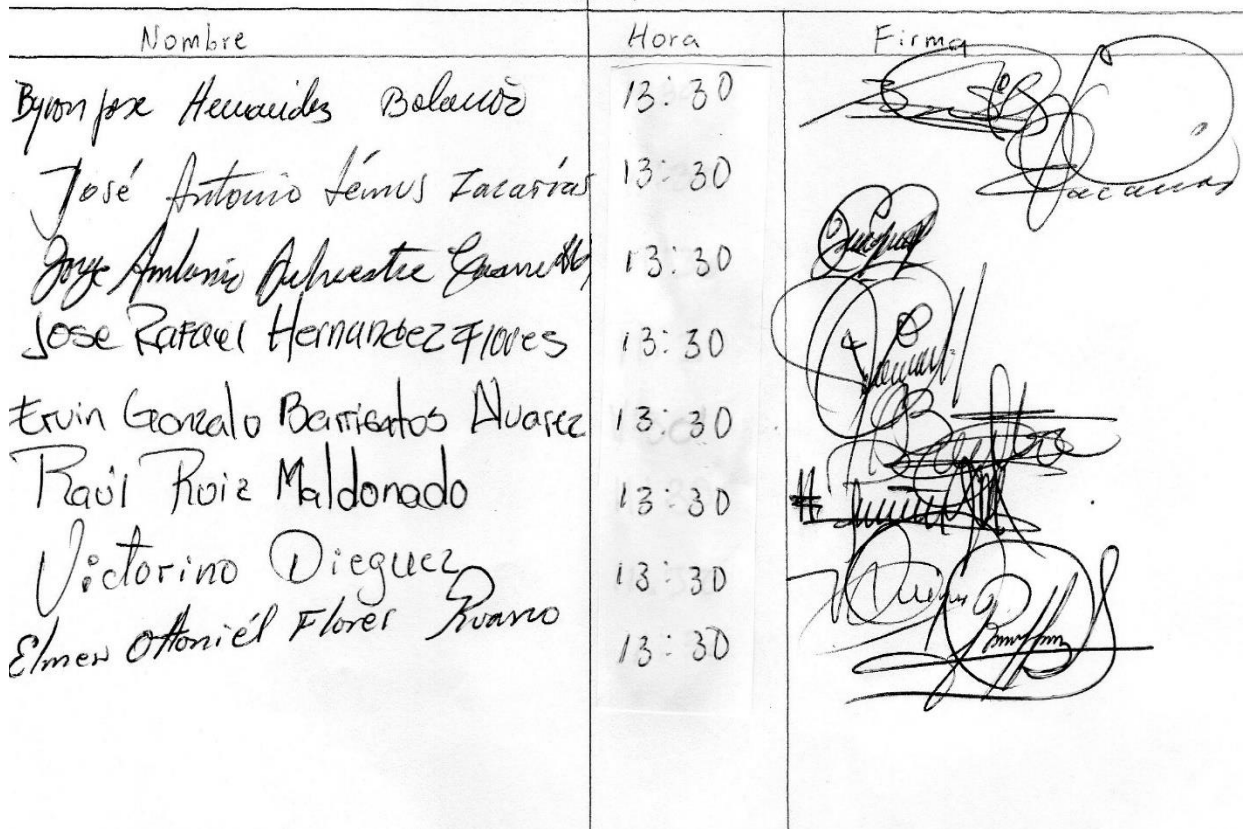 Nombre Hora Firma
Byron jose Hernandez Bolaños 13:30
José Antonio Lémus Zacarías 13:30
Jorge Antonio 13:30
Jose Rafael Hernandez Flores 13:30
Ervin Gonzalo Barrientos Alvarez 13:30
Raúl Ruiz Maldonado 13:30
Victorino Dieguez 13:30
Elmer Ottoniél Flores Ruano 13:30